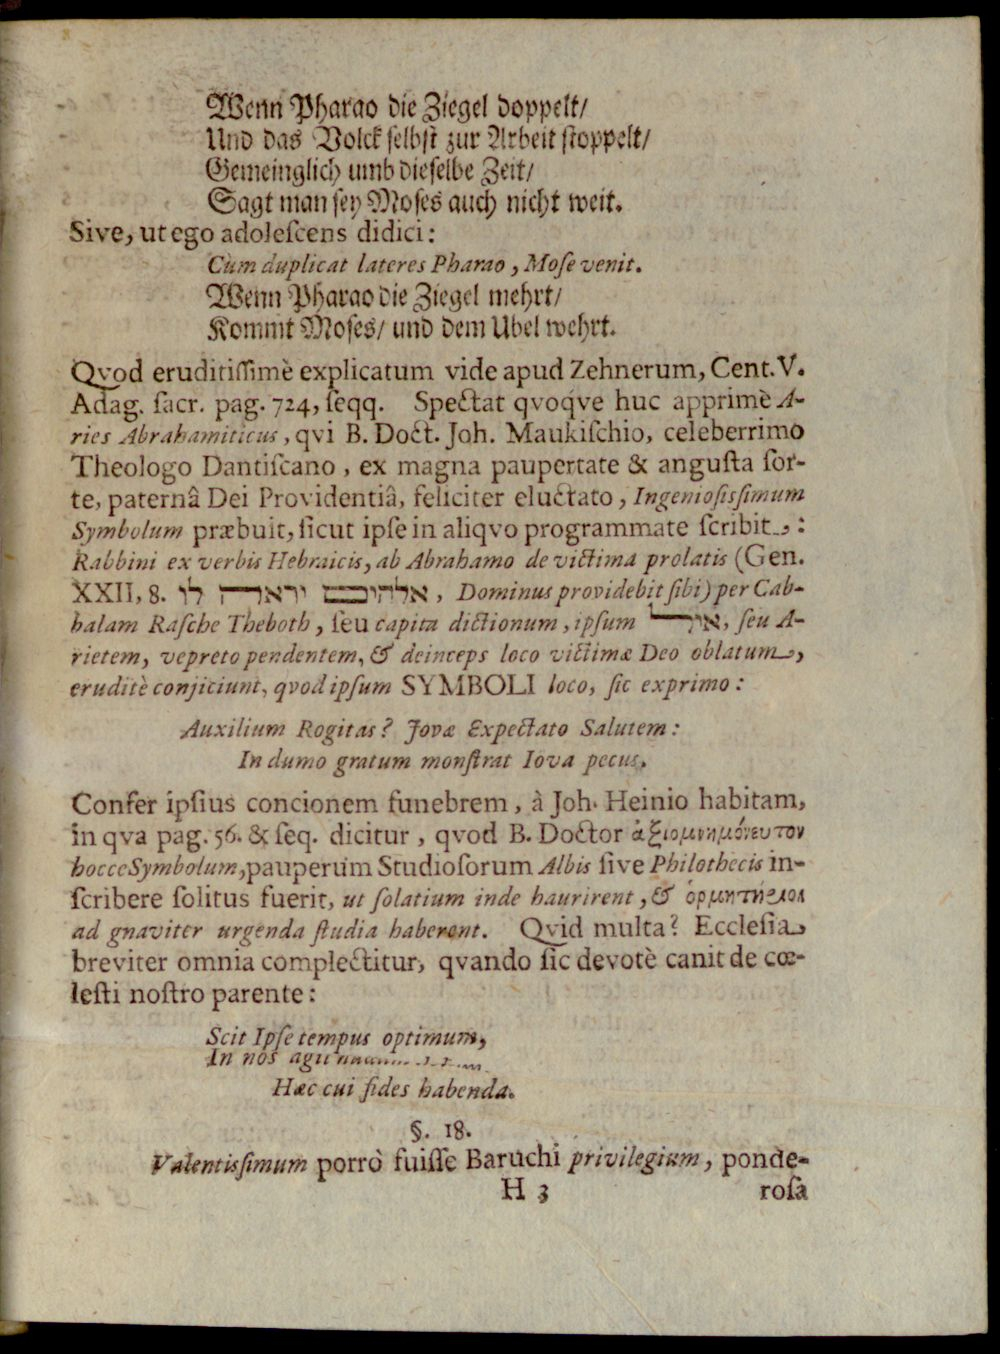 Wenn Pharao die Ziegel doppelt/
Und das Volck selbst zur Arbeit stoppelt/
Gemeinglich umb dieselbe Zeit/
Sagt man sey Moses auch nicht weit.
Sive, ut ego adolescens didici:
Cùm duplicat lateres Pharao, Mose venit.
Wenn Pharao die Ziegel mehrt/
Kommt Moses/ und dem Ubel wehrt.
Qvod eruditissimè explicatum vide apud Zehnerum, Cent. V.
Adag. sacr. pag. 724, seqq. Spectat qvoqve huc apprimè A-
ries Abrahamiticus, qvi B. Doct. Joh. Maukischio, celeberrimo
Theologo Dantiscano, ex magna paupertate & angusta sor-
te, paternâ Dei Providentiâ, feliciter eluctato, Ingeniosissimum
Symbolum præbuit, sicut ipse in aliqvo programmate scribit:
Rabbini ex verbis Hebraicis, ab Abrahamo de victima prolatis (Gen.
XXII, 8. אלהים יראה לו, Dominus providebit sibi) per Cab-
balam Rasche Theboth, seu capita dictionum, ipsum איל, seu A-
rietem, vepreto pendentem, & deinceps loco victimæ Deo oblatum,
eruditè conjiciunt, qvod ipsum SYMBOLI loco, sic exprimo:
Auxilium Rogitas? Jovæ Expectato Salutem:
In dumo gratum monstrat Iova pecus.
Confer ipsius concionem funebrem, à Joh. Heinio habitam,
in qva pag. 56. & seq. dicitur, qvod B. Doctor ἀξιομνημόνευτον
hocce Symbolum, pauperum Studiosorum Albis sive Philothecis in-
scribere solitus fuerit, ut solatium inde haurirent, & ὁρμητήριον
ad gnaviter urgenda studia haberent. Qvid multa? Ecclesia
breviter omnia complectitur, qvando sic devotè canit de cœ-
lesti nostro parente:
Scit Ipse tempus optimum,
In nos agit
Hæc cui fides habenda.
§. 18.
Valentissimum porrò fuisse Baruchi privilegium, ponde-
H 3 rosa